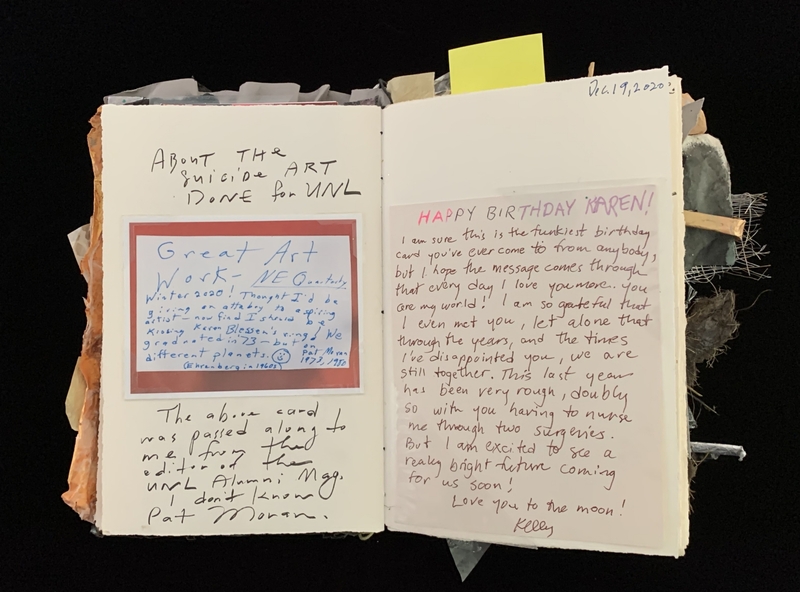 ABOUT THE
SUICIDE ART
DONE for UNL
Great Art
Work - NE Quarterly,
Winter 2020! Thought I'd be
giving an attaboy to aspiring
artist - now find I should be
Kissing Karen Blessen's ring! We
graduated in '73 - but on
different planets. Pat Moran
(Ehrenberg in 1960s) 1973, 1980
The above card
was passed along to
me from the
editor of the
UNL Alumni Mag.
I don't know
Pat Moran.
Dec. 19, 2020
HAPPY BIRTHDAY KAREN!
I am sure this is the funkiest birthday
card you've ever come to from anybody,
but I hope the message comes through
that every day I love you more. You
are my world! I am so grateful that
I even met you, let alone that
through the years, and the times
I've disappointed you, we are
still together. This last year
has been very rough, doubly
so with you having to nurse
me through two surgeries.
But I am excited to see a
really bright future coming
for us soon!
Love you to the moon!
Kelly